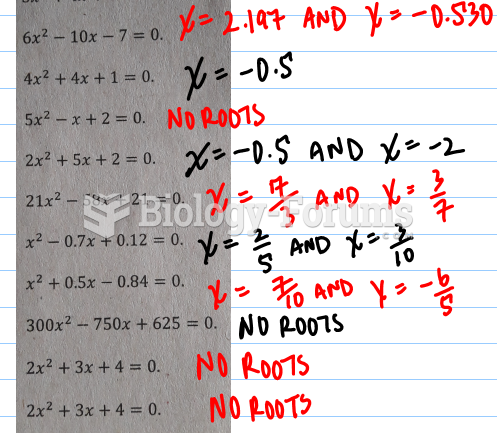 6x² − 10x − 7 = 0. x = 2.197 AND x = −0.530
4x² + 4x + 1 = 0. x = −0.5
5x² − x + 2 = 0. NO ROOTS
2x² + 5x + 2 = 0. x = −0.5 AND x = −2
21x² − 58x + 21 = 0. x = 7/3 AND x = 3/7
Biology-Forums
x² − 0.7x + 0.12 = 0. x = 2/5 AND x = 3/10
x² + 0.5x − 0.84 = 0. x = 7/10 AND x = −6/5
300x² − 750x + 625 = 0. NO ROOTS
2x² + 3x + 4 = 0. NO ROOTS
2x² + 3x + 4 = 0. NO ROOTS